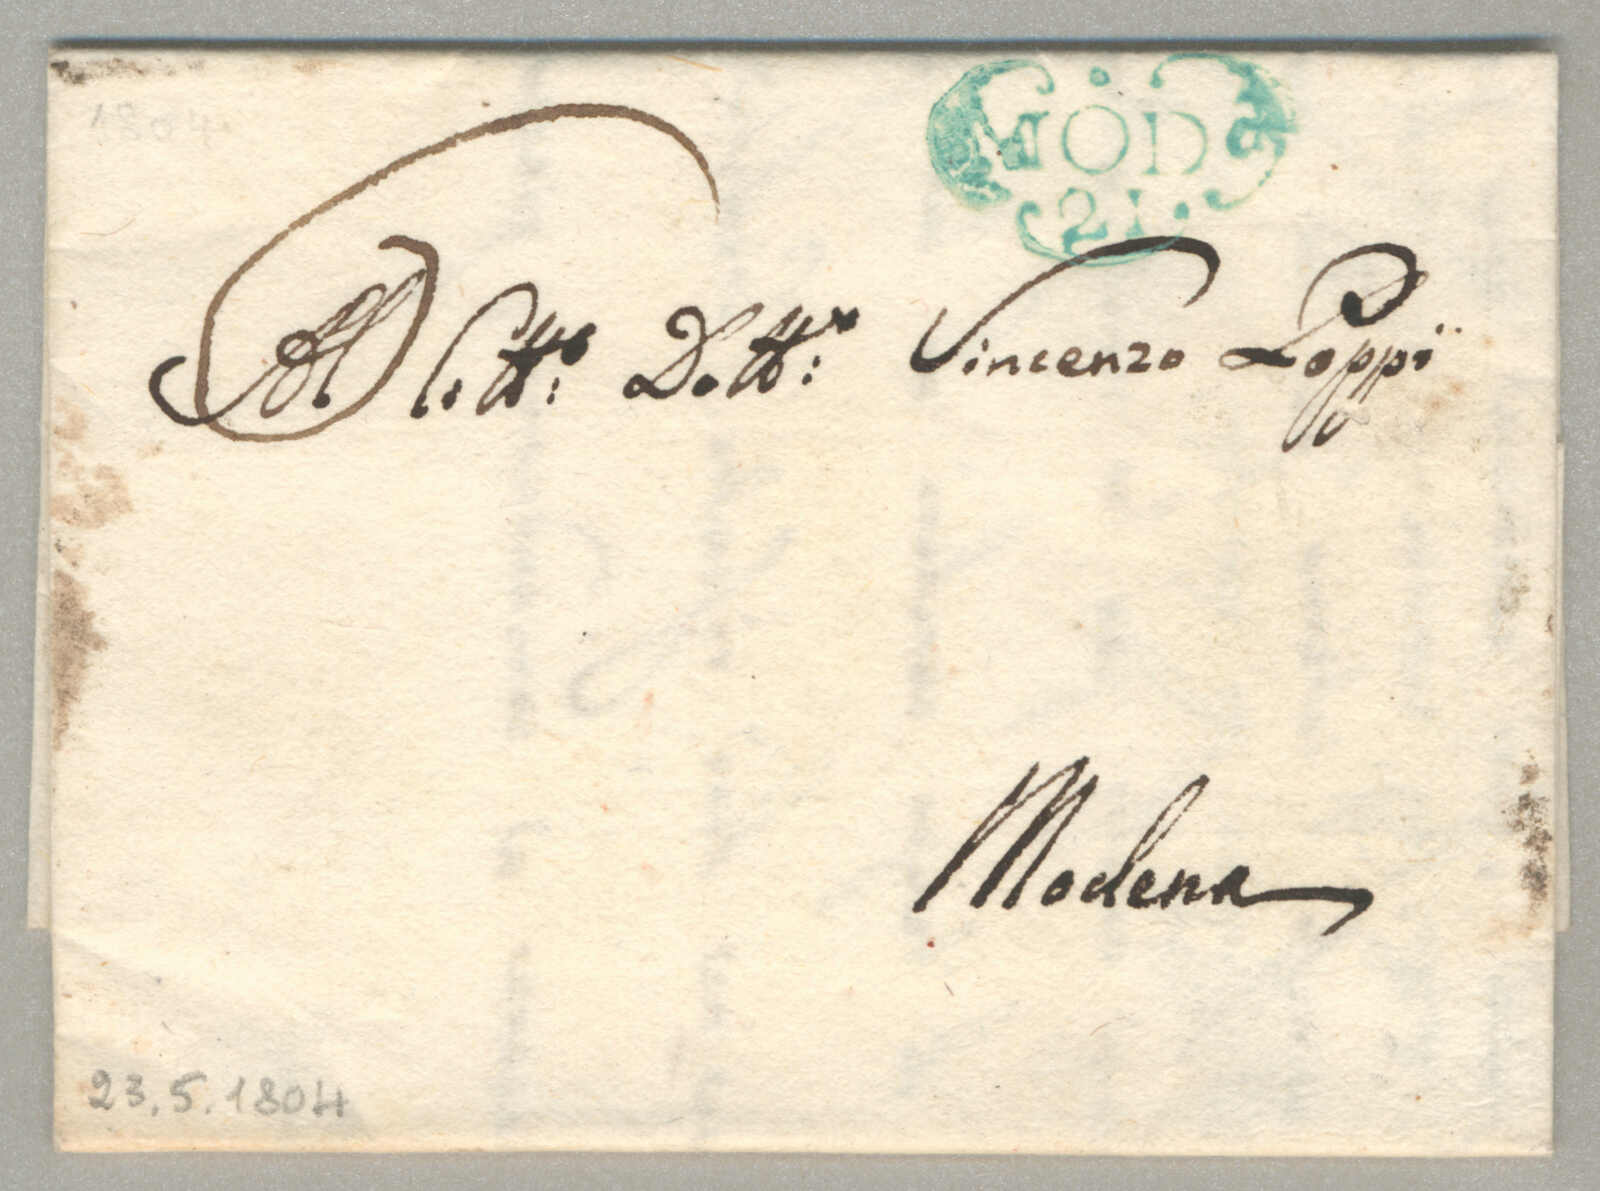 1804
MOD
21.
Al Citt.o Dott.r Vincenzo Poppi
Modena
23.5.1804